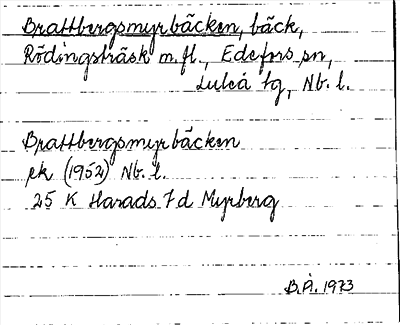 Brattbergsmyrbäcken, bäck,
Rödingsträsk m.fl., Edefors sn,
Luleå tg, Nb. l.
Brattbergsmyrbäcken
ek (1952) Nb. l.
25 K Harads 7d Myrberg
B.Å. 1973